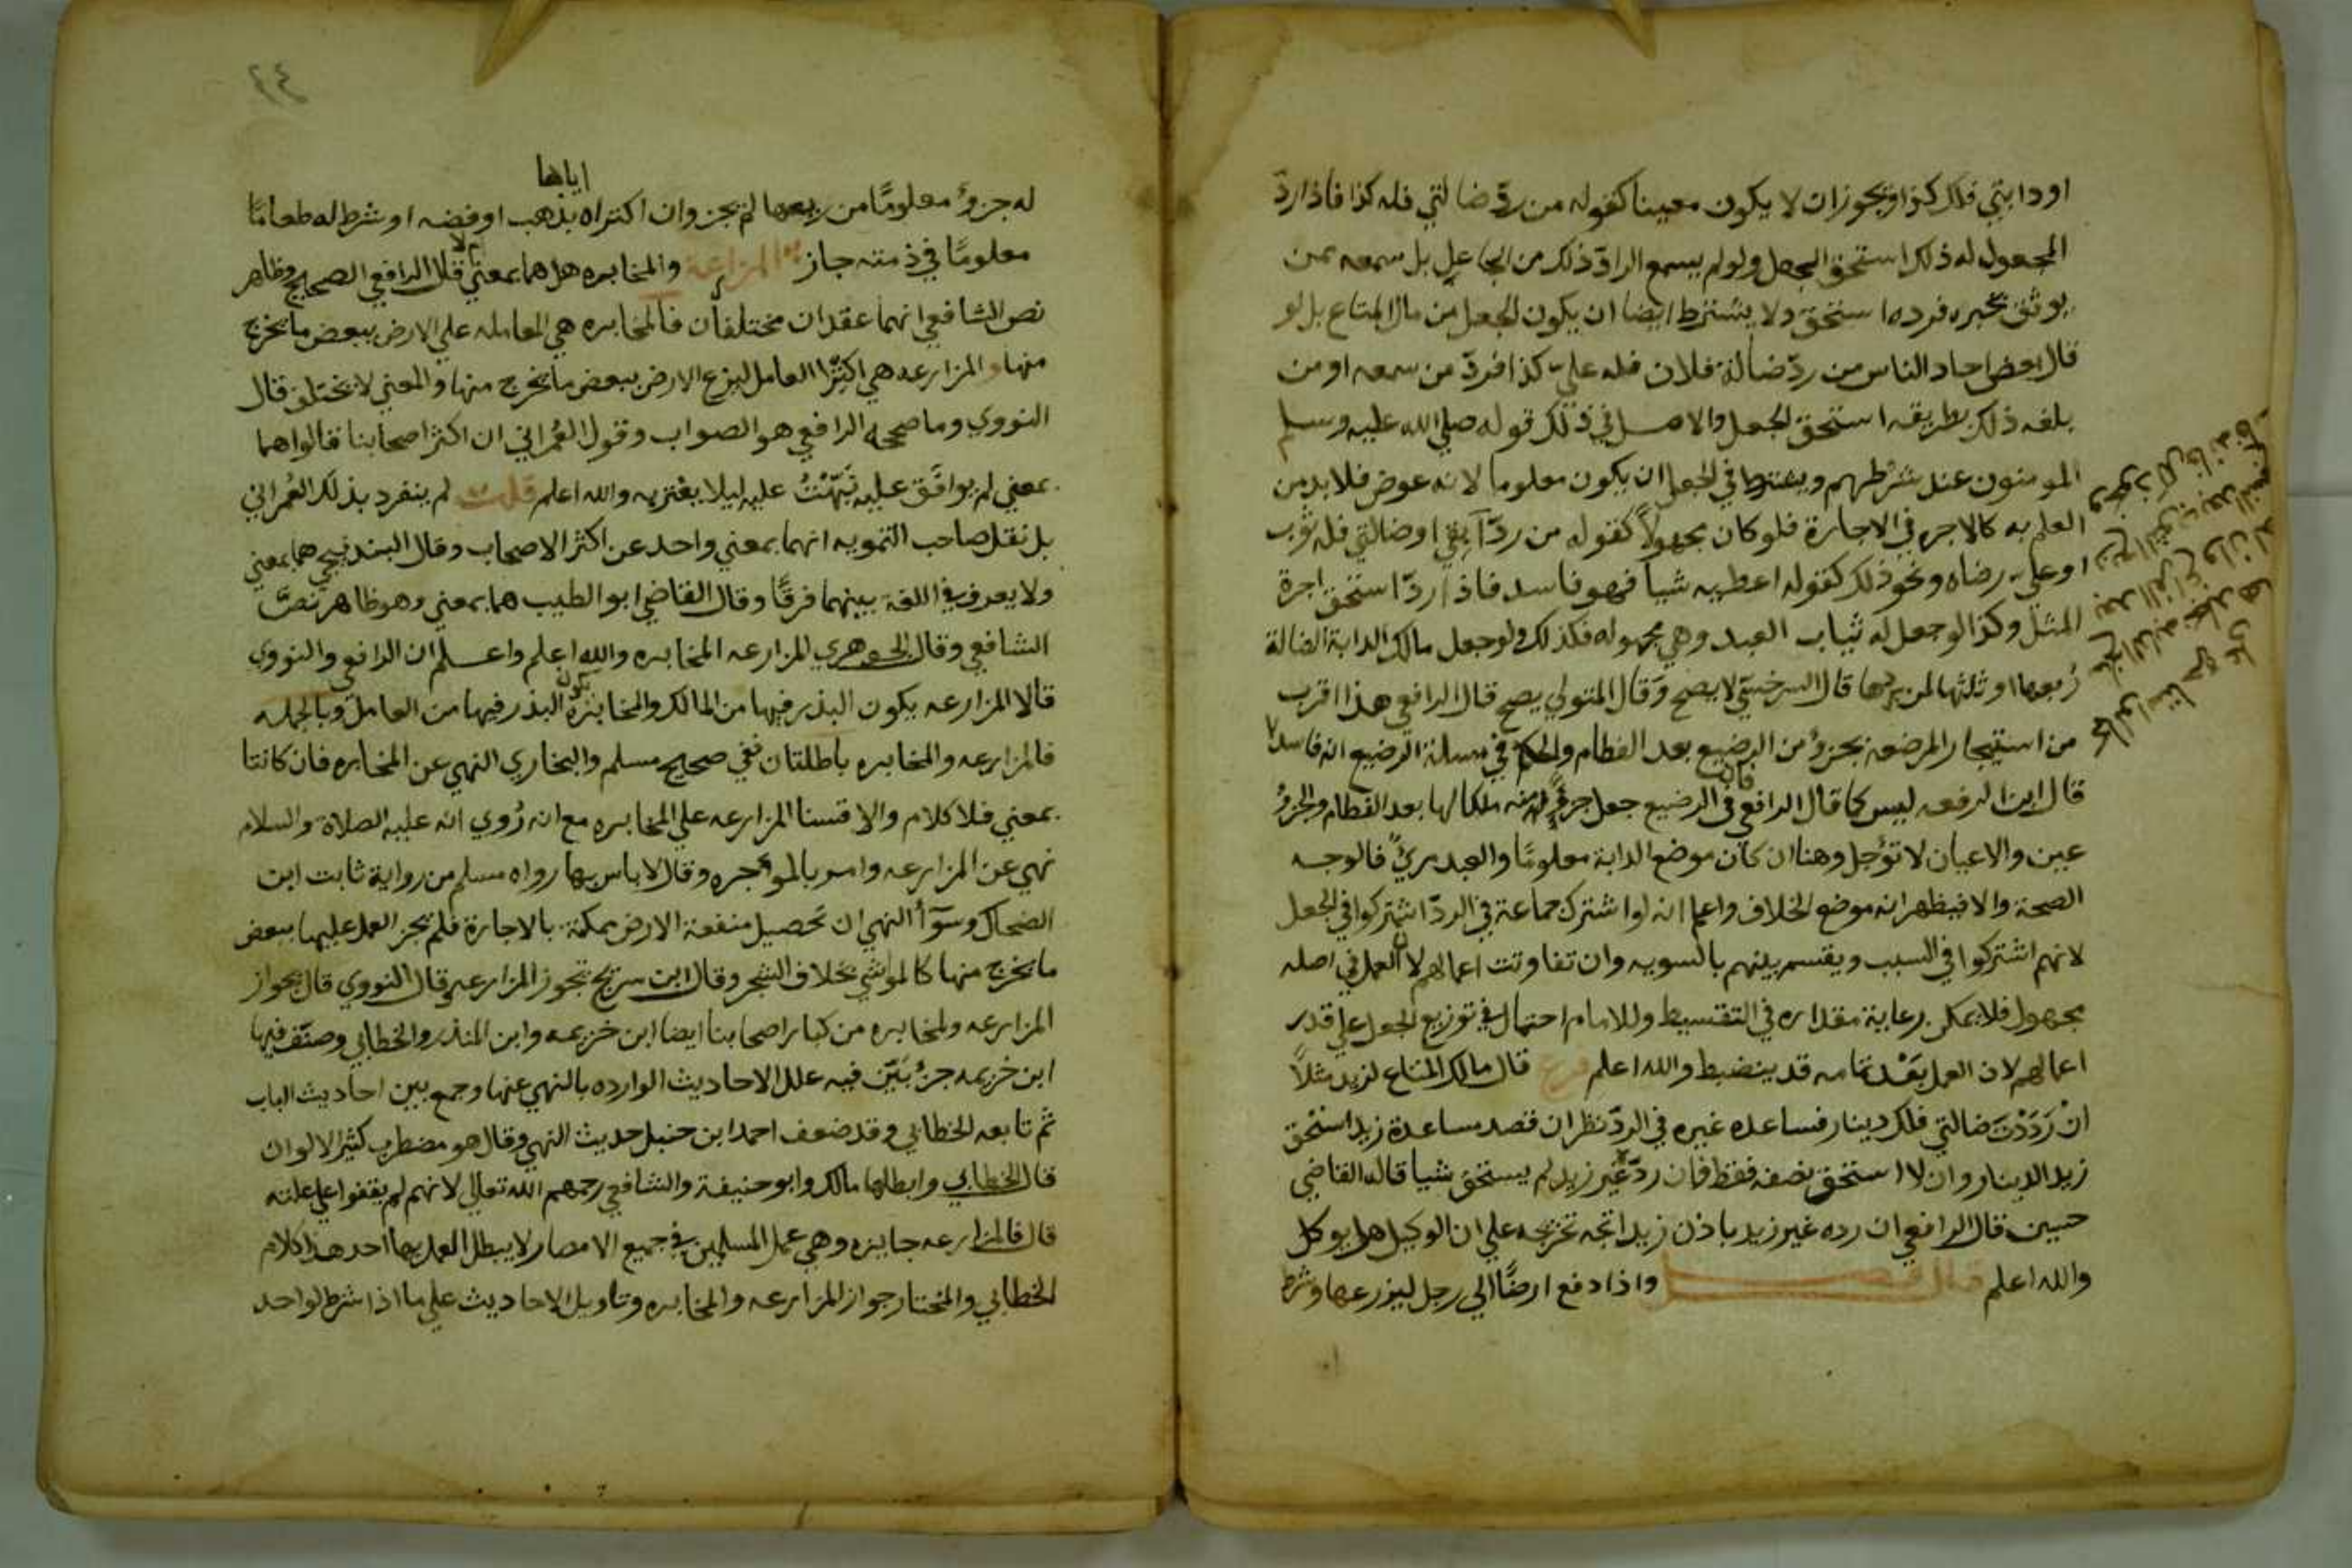 او دابتي فلك كذا ويجوز ان لا يكون معينا كقوله من ردّ ضالتي فله كذا فاذا ردّ
المجعول له ذلك استحق الجعل ولو لم يسمع الرادّ ذلك من الجاعل بل سمعه ممن
يوثق بخبره فرده استحق ولا يشترط ايضا ان يكون الجعل من مال المتاع بل لو
قال بعض احاد الناس من ردّ ضالة فلان فله عليّ كذا فردّ من سمعه او من
بلغه ذلك بطريقه استحق الجعل والاصل في ذلك قوله صلي الله عليه وسلم
المومنون عند شرطهم ويشترط في الجعل ان يكون معلوما لانه عوض فلا بد من
العلم به كالاجره في الاجارة فلو كان مجهولاً كقوله من ردّ آبقي او ضالتي فله ثوب
او عليّ رضاه ونحو ذلك كقوله اعطيه شيا فهو فاسد فاذا ردّ استحق اجرة
المثل وكذا لو جعل له ثياب العبد وهي مجهوله فكذلك ولو جعل مالك الدابة الضالة
رُبعها او ثلثها لمن يردها قال السرخسيّ لا يصح وقال المتولي يصح قال الرافعي هذا اقرب
من استيجار المرضعه بجزؤ من الرضيع بعد الفطام والحكم في مسلة الرضيع انه فاسد
قال ابن الرفعه ليس كما قال الرافعي فان في الرضيع جعل جزؤً منه ملكا لها بعد الفطام والجزؤ
عين والاعيان لا تؤجل وهنا ان كان موضع الدابة معلومًا والعبد مريً فالوجه
الصحة والا فيظهر انه موضع الخلاف واعلم انه لو اشترك جماعة في الردّ اشتركوا في الجعل
لانهم اشتركوا في السبب ويقسم بينهم بالسويه وان تفاوتت اعمالهم لان العمل في اصله
مجهول فلا يمكن رعاية مقداره في التقسيط وللامام احتمال في توزيع الجعل علي قدر
اعمالهم لان العمل بَعْد تمامه قد ينضبط والله اعلم فرع قال مالك المتاع لزيد مثلاً
ان رَدَدْتَ ضالتي فلك دينار فساعده غيره في الردّ نظر ان قصد مساعدة زيد استحق
زيد الدينار وان لا استحق نصفه فقط فان ردّ غير زيد لم يستحق شيا قاله القاضي
حسين قال الرافعي ان رده غير زيد باذن زيد اتجه تخريجه علي ان الوكيل هل يوكل
والله اعلم قال فصل واذا دفع ارضًا الي رجل ليزرعها وشرط
٢٤
اياها
له جزؤ معلومًا من ريعها لم يجز وان اكتراه بذهب او فضه او شرط له طعامًا
معلومًا في ذمته جاز المزارعة والمخابره هل هما بمعني ام لا قال الرافعي الصحيح وظاهر
نص الشافعي انهما عقدان مختلفان فالمخابره هي المعامله علي الارض ببعض ما يخرج
منها والمزارعه هي اكترا العامل ليزرع الارض ببعض ما يخرج منها والمعني لا يختلف قال
النووي وما صححه الرافعي هو الصواب وقول العُمراني ان اكثر اصحابنا قالوا هما
بمعني لم يوافَق عليه نَبّهْتُ عليه ليلا يغتر به والله اعلم قلت لم ينفرد بذلك العُمراني
بل نقل صاحب التمويه انهما بمعني واحد عن اكثر الاصحاب وقال البندنيجي هما بمعني
ولا يعرف في اللغة بينهما فرقًا وقال القاضي ابو الطيب هما بمعني وهو ظاهر نصّ
الشافعي وقال الجوهري المزارعه المخابره والله اعلم واعلم ان الرافعي والنووي
قالا المزارعه يكون البذر فيها من المالك والمخابرة يكون البذر فيها من العامل وبالجمله
فالمزارعه والمخابره باطلتان ففي صحيح مسلم والبخاري النهي عن المخابره فان كانتا
بمعني فلا كلام والا قسنا المزارعه علي المخابره مع انه رُوي انه عليه الصلاة والسلام
نهي عن المزارعه وامر بالمواجره وقال لا باس بها رواه مسلم من رواية ثابت ابن
الضحاك وسوآ النهي ان تحصيل منفعة الارض ممكنة بالاجارة فلم يجز العمل عليها ببعض
ما يخرج منها كالمواشي بخلاف الشجر وقال ابن سريج تجوز المزارعه وقال النووي قال بجواز
المزارعه والمخابره من كبار اصحابنا ايضا ابن خزيمه وابن المنذر والخطابي وصنّف فيها
ابن خزيمه جزؤ بَيّن فيه علل الاحاديث الوارده بالنهي عنها وجمع بين احاديث الباب
ثم تابعه الخطابي وقد ضعف احمد ابن حنبل حديث النهي وقال هو مضطرب كثير الالوان
قال الخطابي وابطلها مالك وابو حنيفة والشافعي رحمهم الله تعالي لانهم لم يقفوا علي علته
قال فالمزارعه جايزه وهي عمل المسلمين في جميع الامصار لا يبطل العمل بها احد هذا كلام
الخطابي والمختار جواز المزارعه والمخابره وتاويل الاحاديث علي ما اذا شرط لواحد